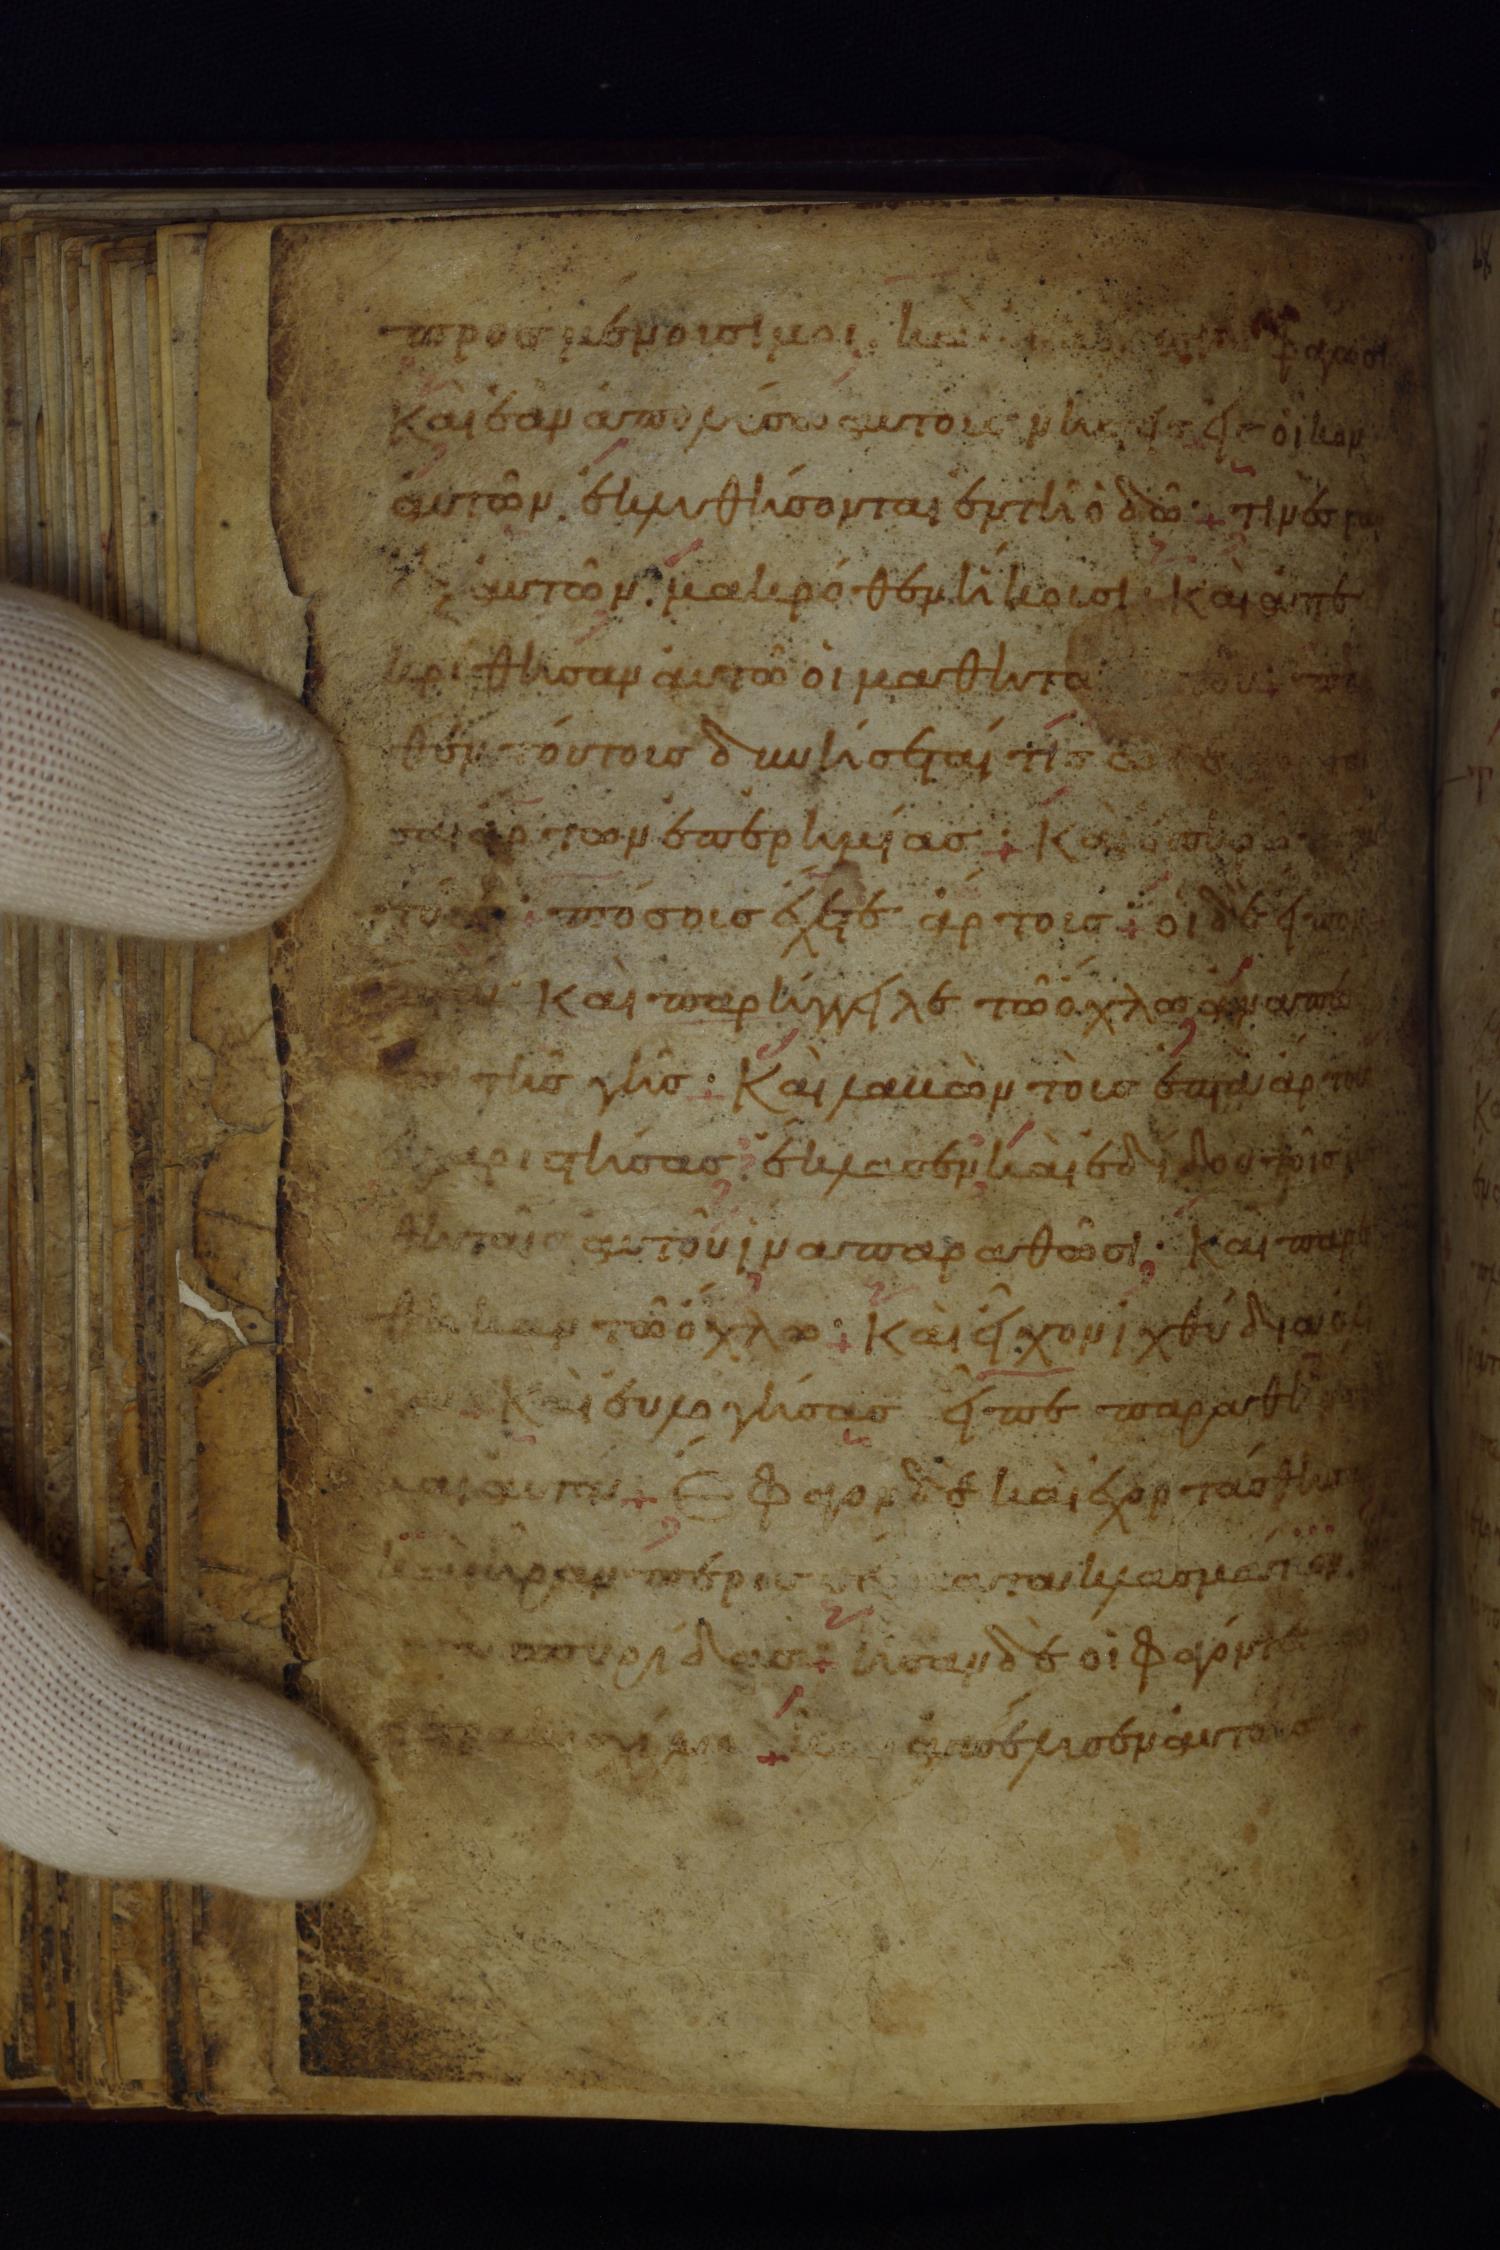 προσμένουσί μοι. καὶ φάγωσι
Καὶ ἐὰν ἀπολύσω αὐτοὺς νήστεις εἰς οἶκον
αὐτῶν. ἐκλυθήσονται ἐν τῆ ὁδῶ + τινὲς γὰρ
ἐξ αὐτῶν. μακρόθεν ἥκουσι Καὶ ἀπε
κρίθησαν αὐτῶ οἱ μαθηταὶ αὐτοῦ πό
θεν τούτους δυνήσεταί τις ὧδε
ἄρτων ἐπ ἐρημίας + Καὶ ἐπηρώτα
πόσους ἔχετε ἄρτους + οἱ δὲ εἶπον
Καὶ παρήγγειλε τῶ ὄχλω ἀναπε
τῆς γῆς + Καὶ λαβὼν τοὺς ἑπτὰ ἄρτους
εὐχαριστήσας ἔκλασεν καὶ ἐδίδου τοῖς μα
θηταῖς αὐτοῦ ἵνα παραθῶσι. Καὶ παρέ
θηκαν τῶ ὄχλω + Καὶ εἶχον ἰχθύδια ὀλί
Καὶ εὐλογήσας εἶπε παραθη
καὶ αὐτά + Ἔφαγον δὲ καὶ ἐχορτάσθησαν
καὶ ἦραν περισσεύματα κλασμάτων.
σπυρίδας + ἦσαν δὲ οἱ φαγόντες
τετρακισχίλιοι + Καὶ ἀπέλυσεν αὐτούς